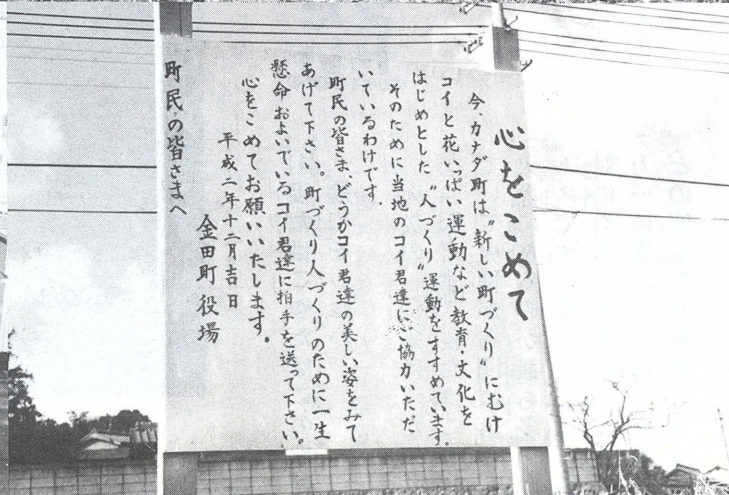 心をこめて
今、カナダ町は〝新しい町づくり〟にむけ
コイと花いっぱい運動など教育・文化を
はじめとした〝人づくり〟運動をすすめています。
そのために当地のコイ君達にご協力いただ
いているわけです。
町民の皆さま、どうかコイ君達の美しい姿をみて
あげて下さい。町づくり人づくりのために一生
懸命およいでいるコイ君達に拍手を送って下さい。
心をこめてお願いいたします。
平成二年十二月吉日
金田町役場
町民の皆さまへ